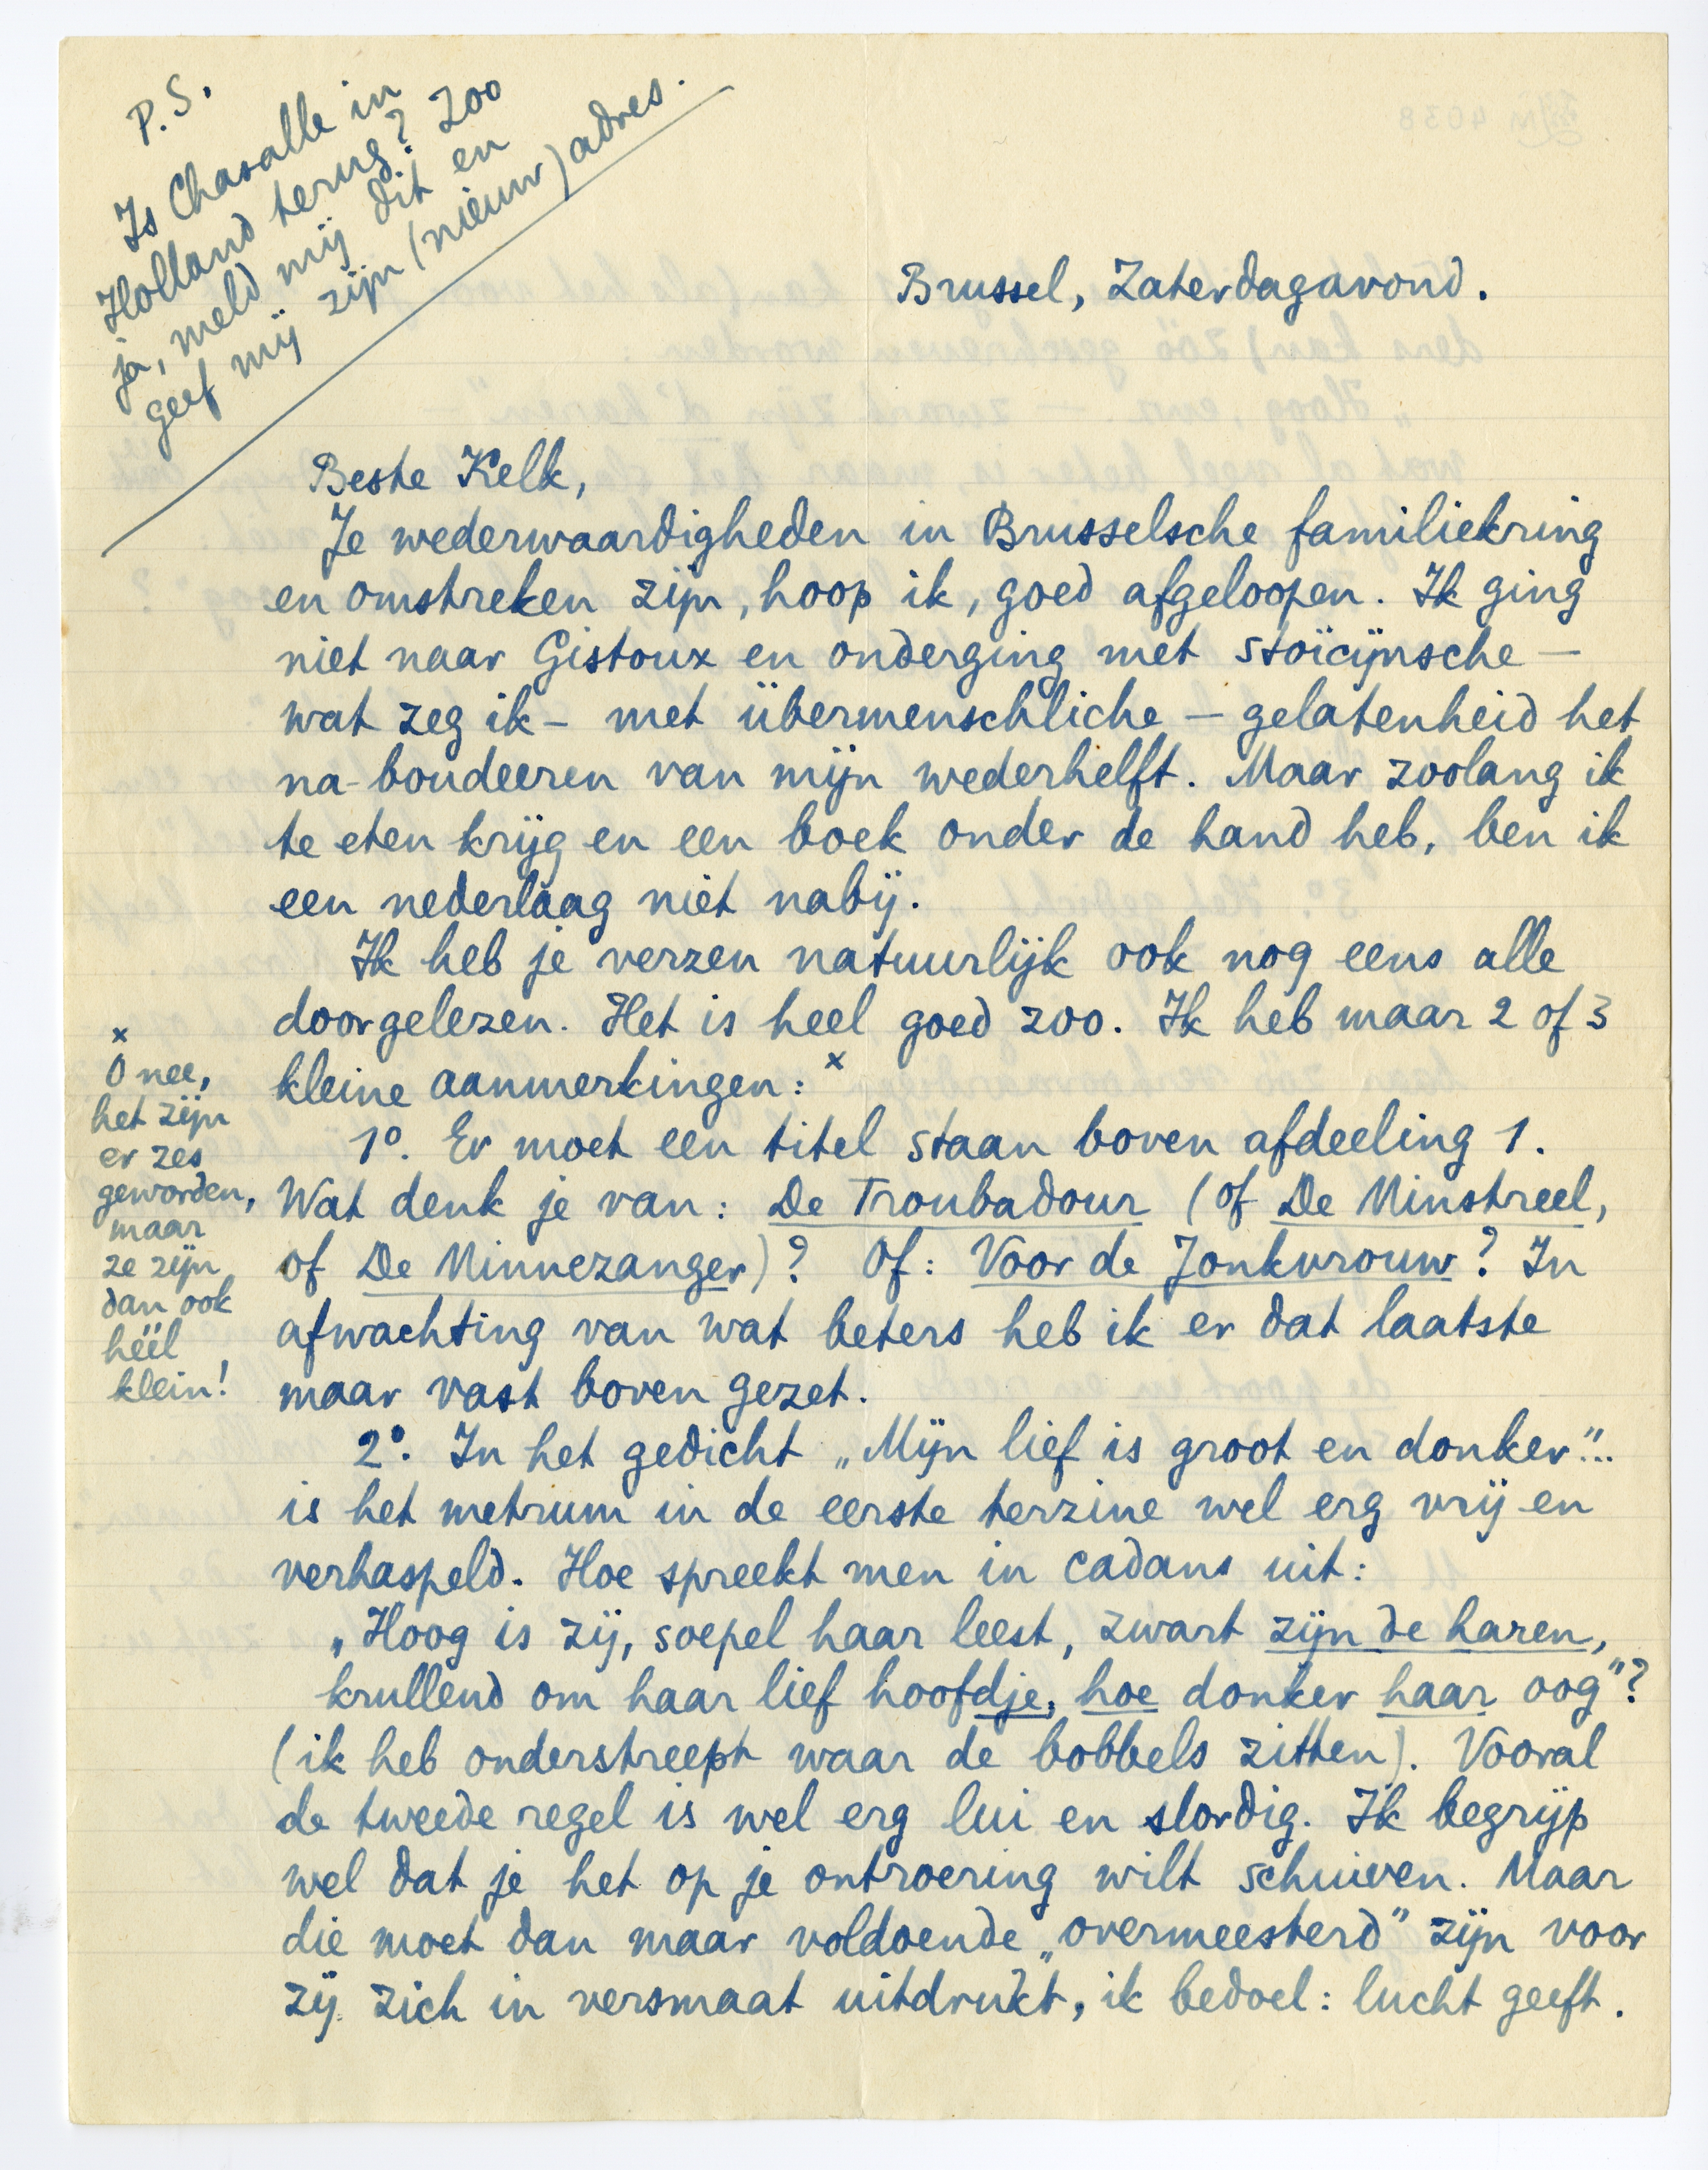 P.S.
Is Chasalle in
Holland terug? Zoo
ja, meld mij dit en
geef mij zijn (nieuw) adres.
Brussel, Zaterdagavond.
Beste Kelk,
Je wederwaardigheden in Brusselsche familiekring
en omstreken zijn, hoop ik, goed afgeloopen. Ik ging
niet naar Gistoux en onderging met stoïcijnsche –
wat zeg ik – met übermenschliche – gelatenheid het
na-boudeeren van mijn wederhelft. Maar zoolang ik
te eten krijg en een boek onder de hand heb, ben ik
een nederlaag niet nabij.
Ik heb je verzen natuurlijk ook nog eens alle
doorgelezen. Het is heel goed zoo. Ik heb maar 2 of 3
kleine aanmerkingen: x
x
O nee,
het zijn
er zes
geworden,
maar
ze zijn
dan ook
héél
klein!
1º. Er moet een titel staan boven afdeeling 1.
Wat denk je van: De Troubadour (of De Minstreel,
of De Minnezanger)? Of: Voor de Jonkvrouw? In
afwachting van wat beters heb ik er dat laatste
maar vast boven gezet.
2º. In het gedicht „Mijn lief is groot en donker"...
is het metrum in de eerste terzine wel erg vrij en
verhaspeld. Hoe spreekt men in cadans uit:
„Hoog is zij, soepel haar leest, zwart zijn de haren,
krullend om haar lief hoofdje, hoe donker haar oog"?
(ik heb onderstreept waar de bobbels zitten). Vooral
de tweede regel is wel erg lui en slordig. Ik begrijp
wel dat je het op je ontroering wilt schuiven. Maar
die moet dan maar voldoende „overmeesterd" zijn voor
zij zich in versmaat uitdrukt, ik bedoel: lucht geeft.